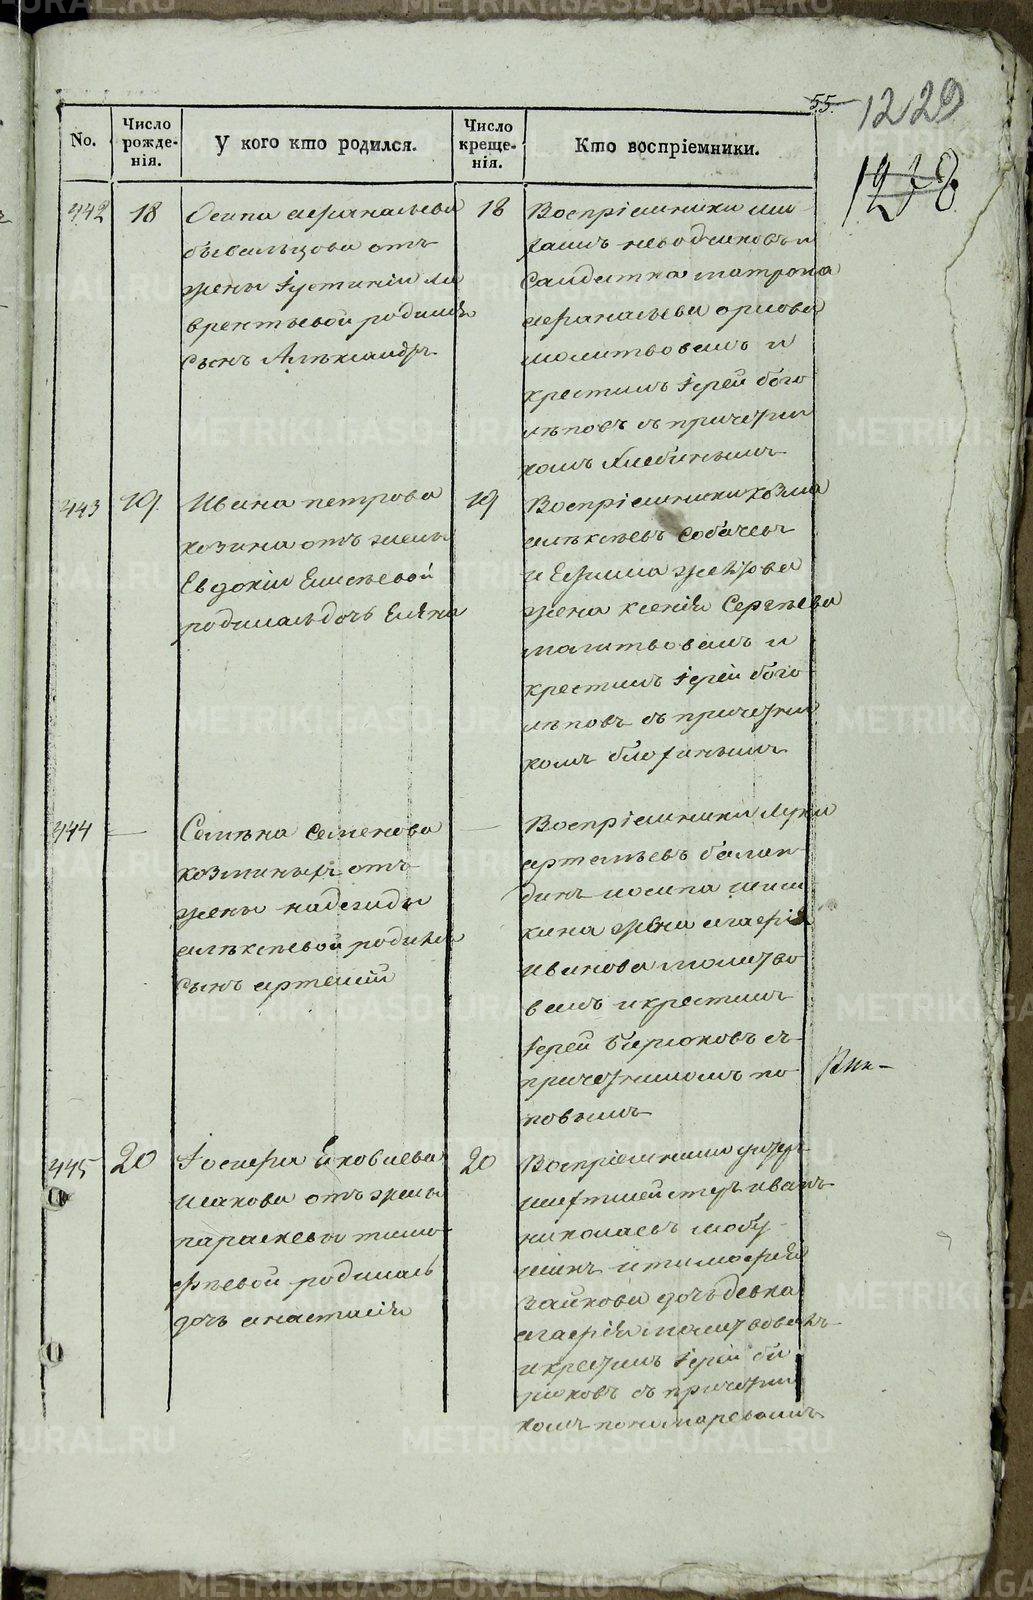 55.
1229
1278.
No.
Число рожде- нія.
У кого кто родился.
Число креще- нія.
Кто воспріемники.
442
18
Осипа Афанасьева
бывальцова отъ
жены Іустиніи ла
врентьевой родился
сынъ Александръ
18
Воспріемники
и
Солдатка матрона
афанасьева орлова
молитвовалъ и
крестилъ Іерей бого
лѣповъ съ причетни
комъ
443
19.
Ивана петрова
козина отъ жены
Евдокіи Елисѣевой
родилась дочь Елена
19
Воспріемники козма
алѣксѣевъ собачевъ
и Ефима
жена ксенія Сергѣева
молитвовалъ и
крестилъ Іерей бого
лѣповъ съ причетни
комъ
444
—
Семѣна Семенова
козминыхъ отъ
жены надежды
алѣксѣевой родился
сынъ артемій
—
Воспріемники Лука
артемьевъ балан
динъ иосипа шиш
кина жена агафія
иванова молитво
валъ и крестилъ
Іерей бирюковъ съ
причетникомъ по
повымъ
445
20
Іосифа Яковлева
исакова отъ жены
параскевы тимо
фѣевой родилась
дочь анастасія
20
Воспріемники унтеръ
шихтмейстеръ иванъ
николаевъ
и тимофея
зайкова дочь девка
агафія молитвовалъ
и крестилъ Іерей би
рюковъ съ причетни
комъ пономаревымъ
METRIKI.GASO-URAL.RU